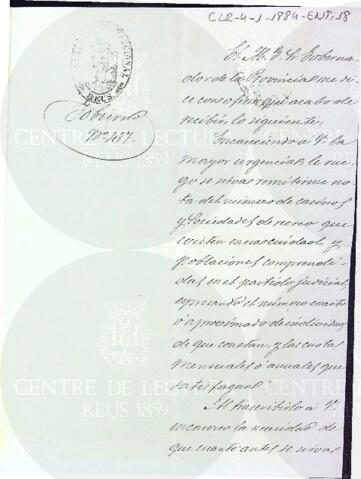 CLR-4-1-1884-ENT,18
REUS
Gobierno
Nº 487.
El M. I. Sr. Goberna-
dor de la Provincia me di-
ce con oficio que acabo de
recibir, lo siguiente:
Encareciendo á V. la
mayor urgencia, le rue-
go se sirva remitirme no-
ta del número de casinos
y Sociedades de recreo que
existen en esa ciudad y
poblaciones comprendi-
das en el partido judicial,
expresando el número exacto
ó aproximado de individuos
de que constan, y las cuotas
mensuales ó anuales que
satisfagan.
Al trascribirlo á V.
encarezco la necesidad de
que cuanto antes se sirva
CENTRE DE LECTURA
REUS 1859
CENTRE DE LECTURA
REUS 1859